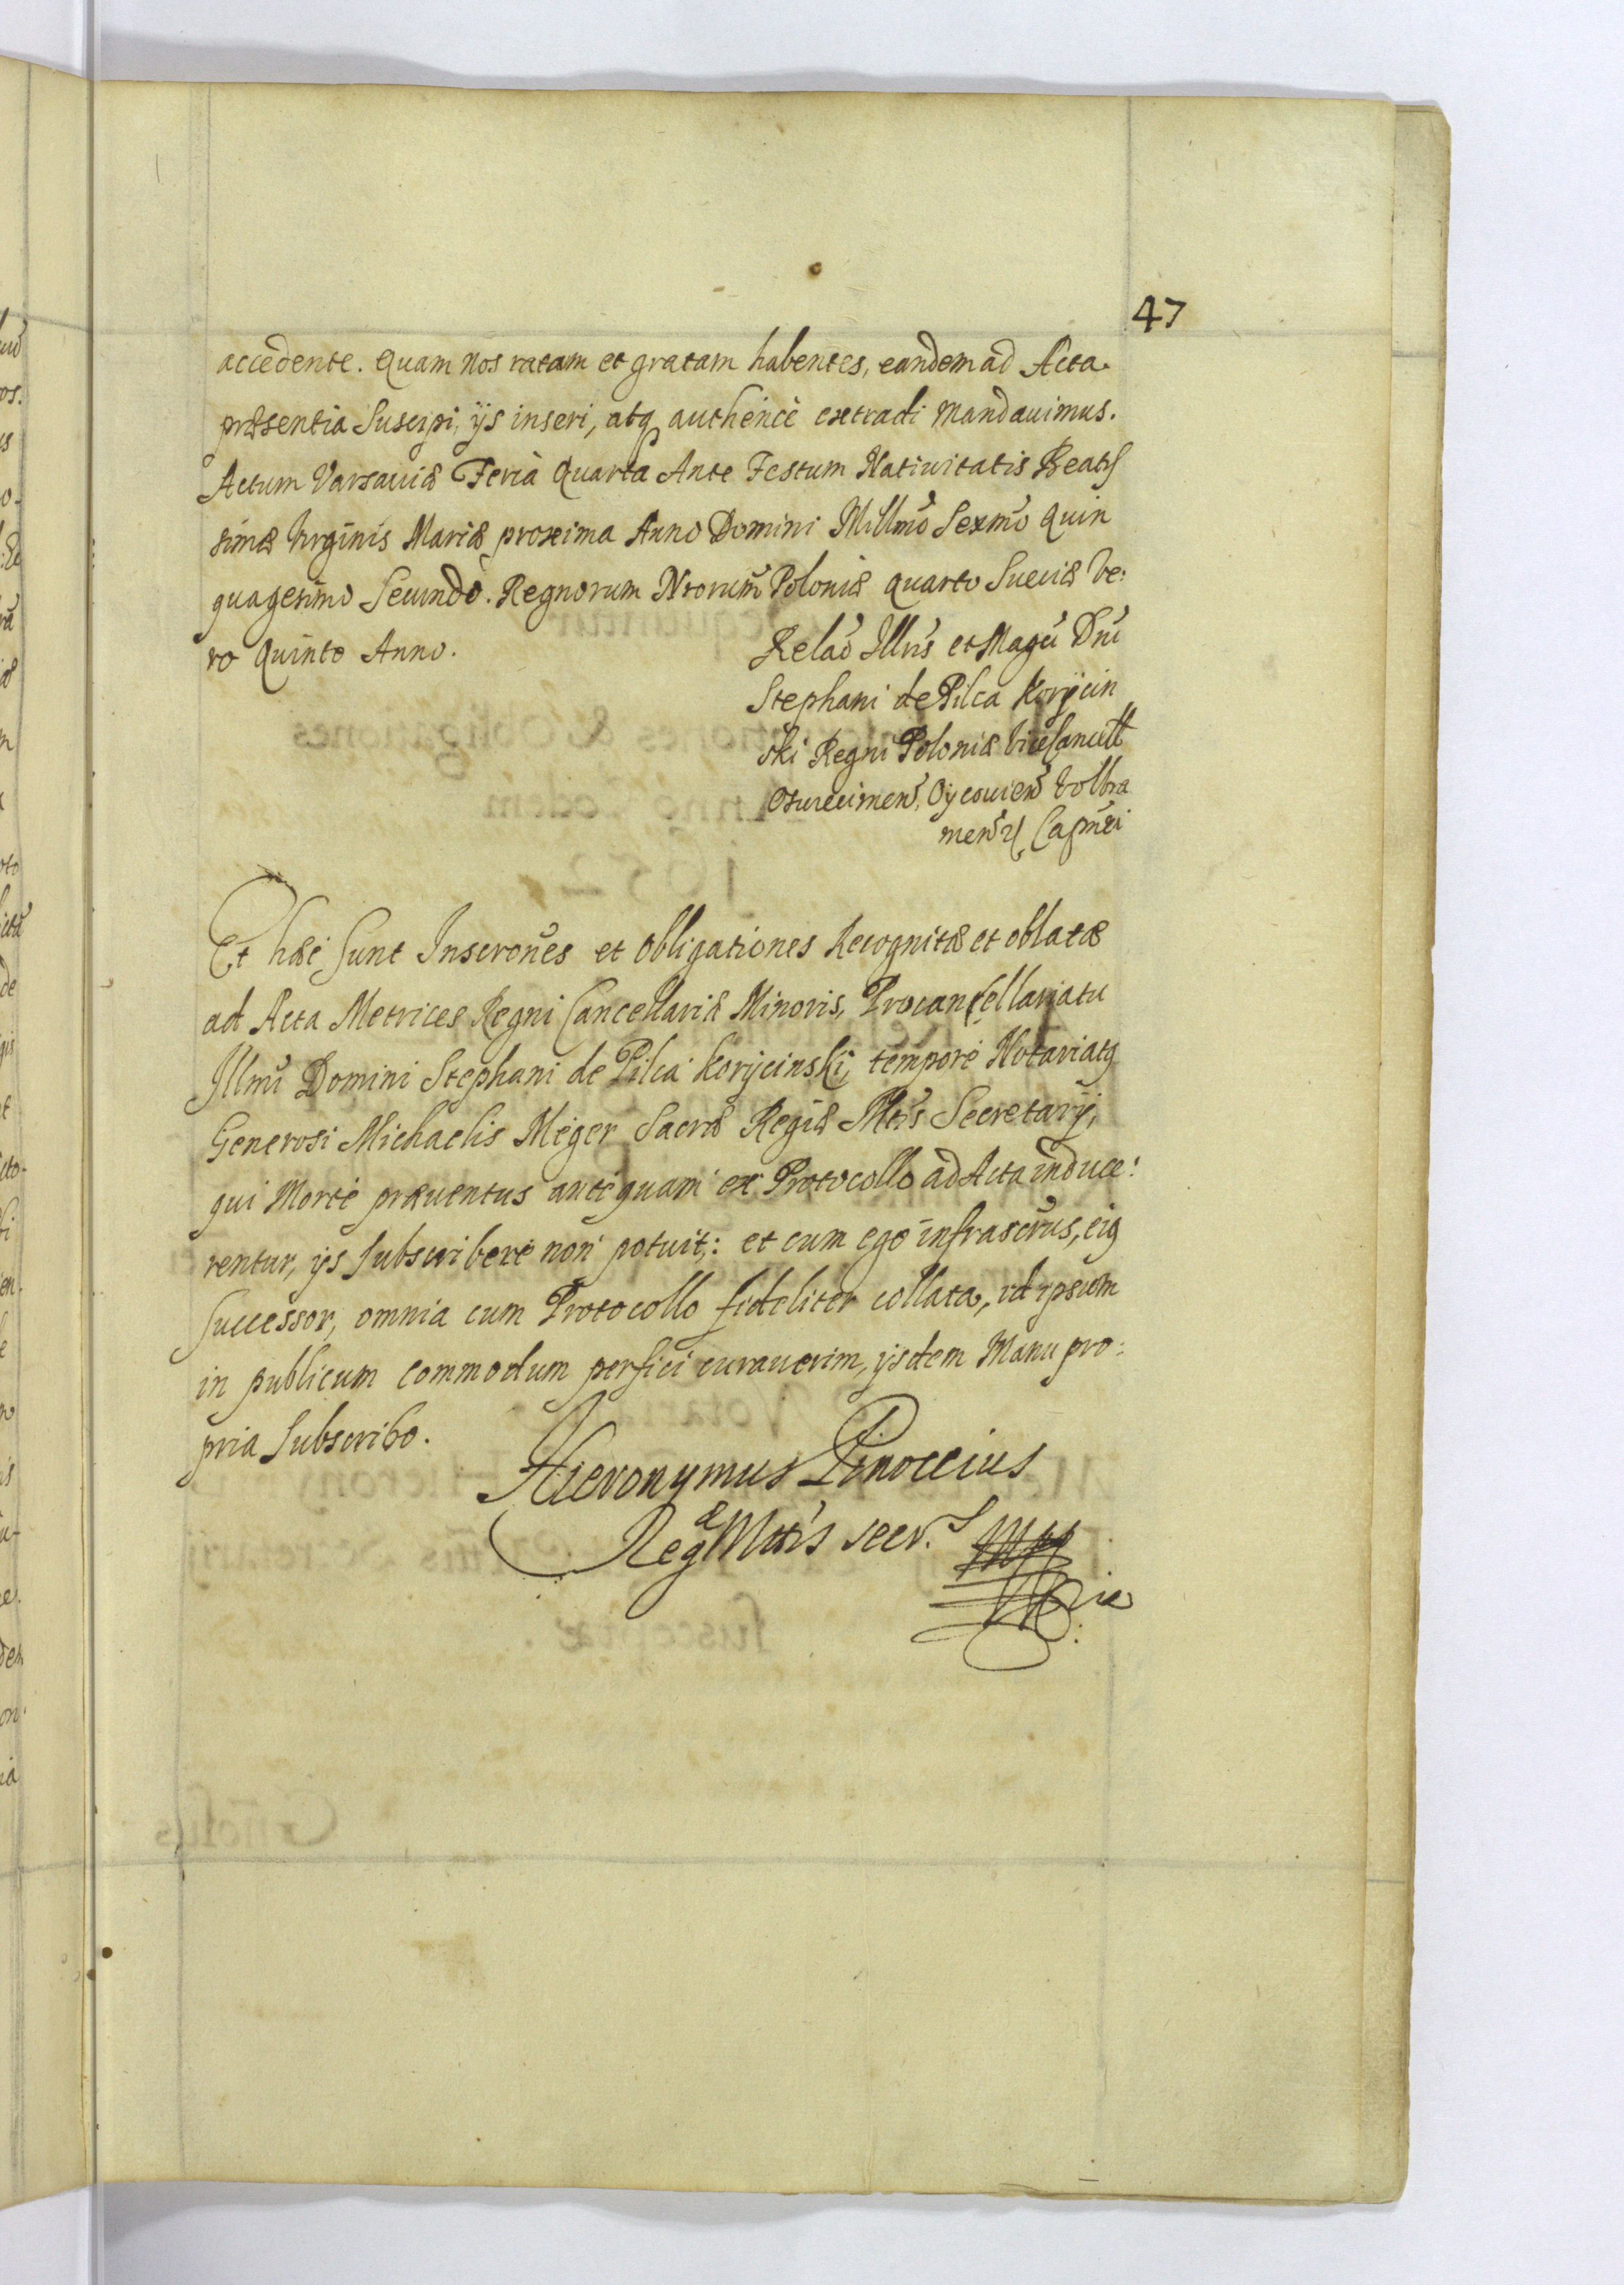 47
accedente. Quam nos ratam et gratam habentes, eandem ad Acta
præsentia Suscipi, ijs inseri, atq authence extradi mandauimus.
Actum Varsauiæ Feria Quarta Ante Festum Natiuitatis Beatis
simæ Virginis Mariæ proxima Anno Domini Millmo Sexmo Quin
quagesimo Secundo. Regnorum Nrorum Poloniæ quarto Sueciæ Ve:
ro Quinto Anno.
Relao Illris et Magci Dni
Stephani de Pilca Koryicin
ski Regni Poloniæ Vicecancell
Oycouien Volbra
men Capnei
Et hæc sunt Inscrones et Obligationes Recognitæ et oblatæ
ad Acta Metrices Regni Cancellariæ Minoris, Procancellariatu
Illmi Domini Stephani de Pilca Korycinski, tempore Notariatq
Generosi Michaelis Meger Sacræ Regiæ Mtis Secretarij,
qui Morte præuentus antequam ex Protocollo ad Acta induce:
rentur, ijs Subscribere non potuit: et cum ego infrascrus, eiq
Successor, omnia cum Protocollo fideliter collata, id ipsum
in publicum commodum perfici curauerim, ijsdem Manu pro:
pria Subscribo.
Hieronymus Pinoccius
Reg Mttis secr.